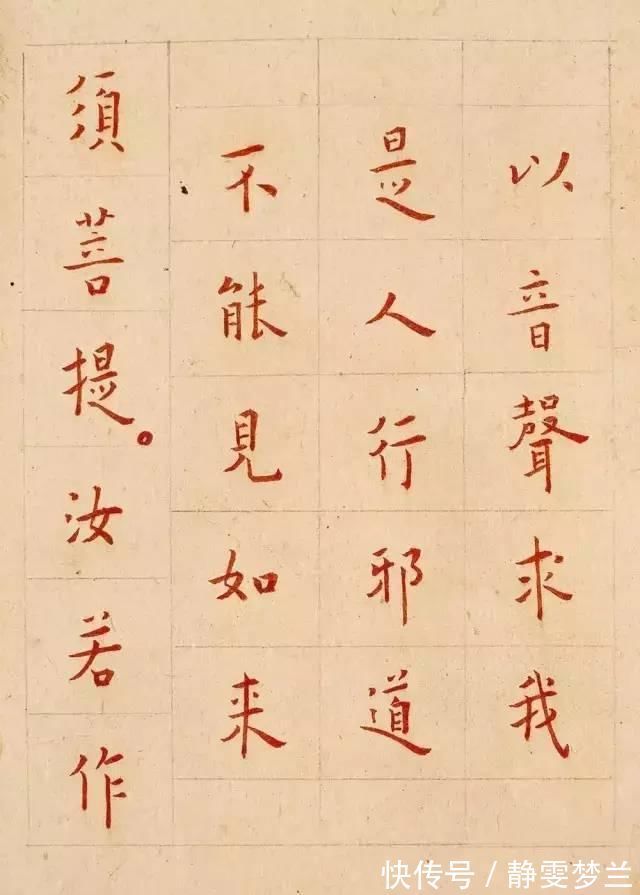 以音聲求我
是人行邪道
不能見如来
須菩提。汝若作
快传号/静雯梦兰